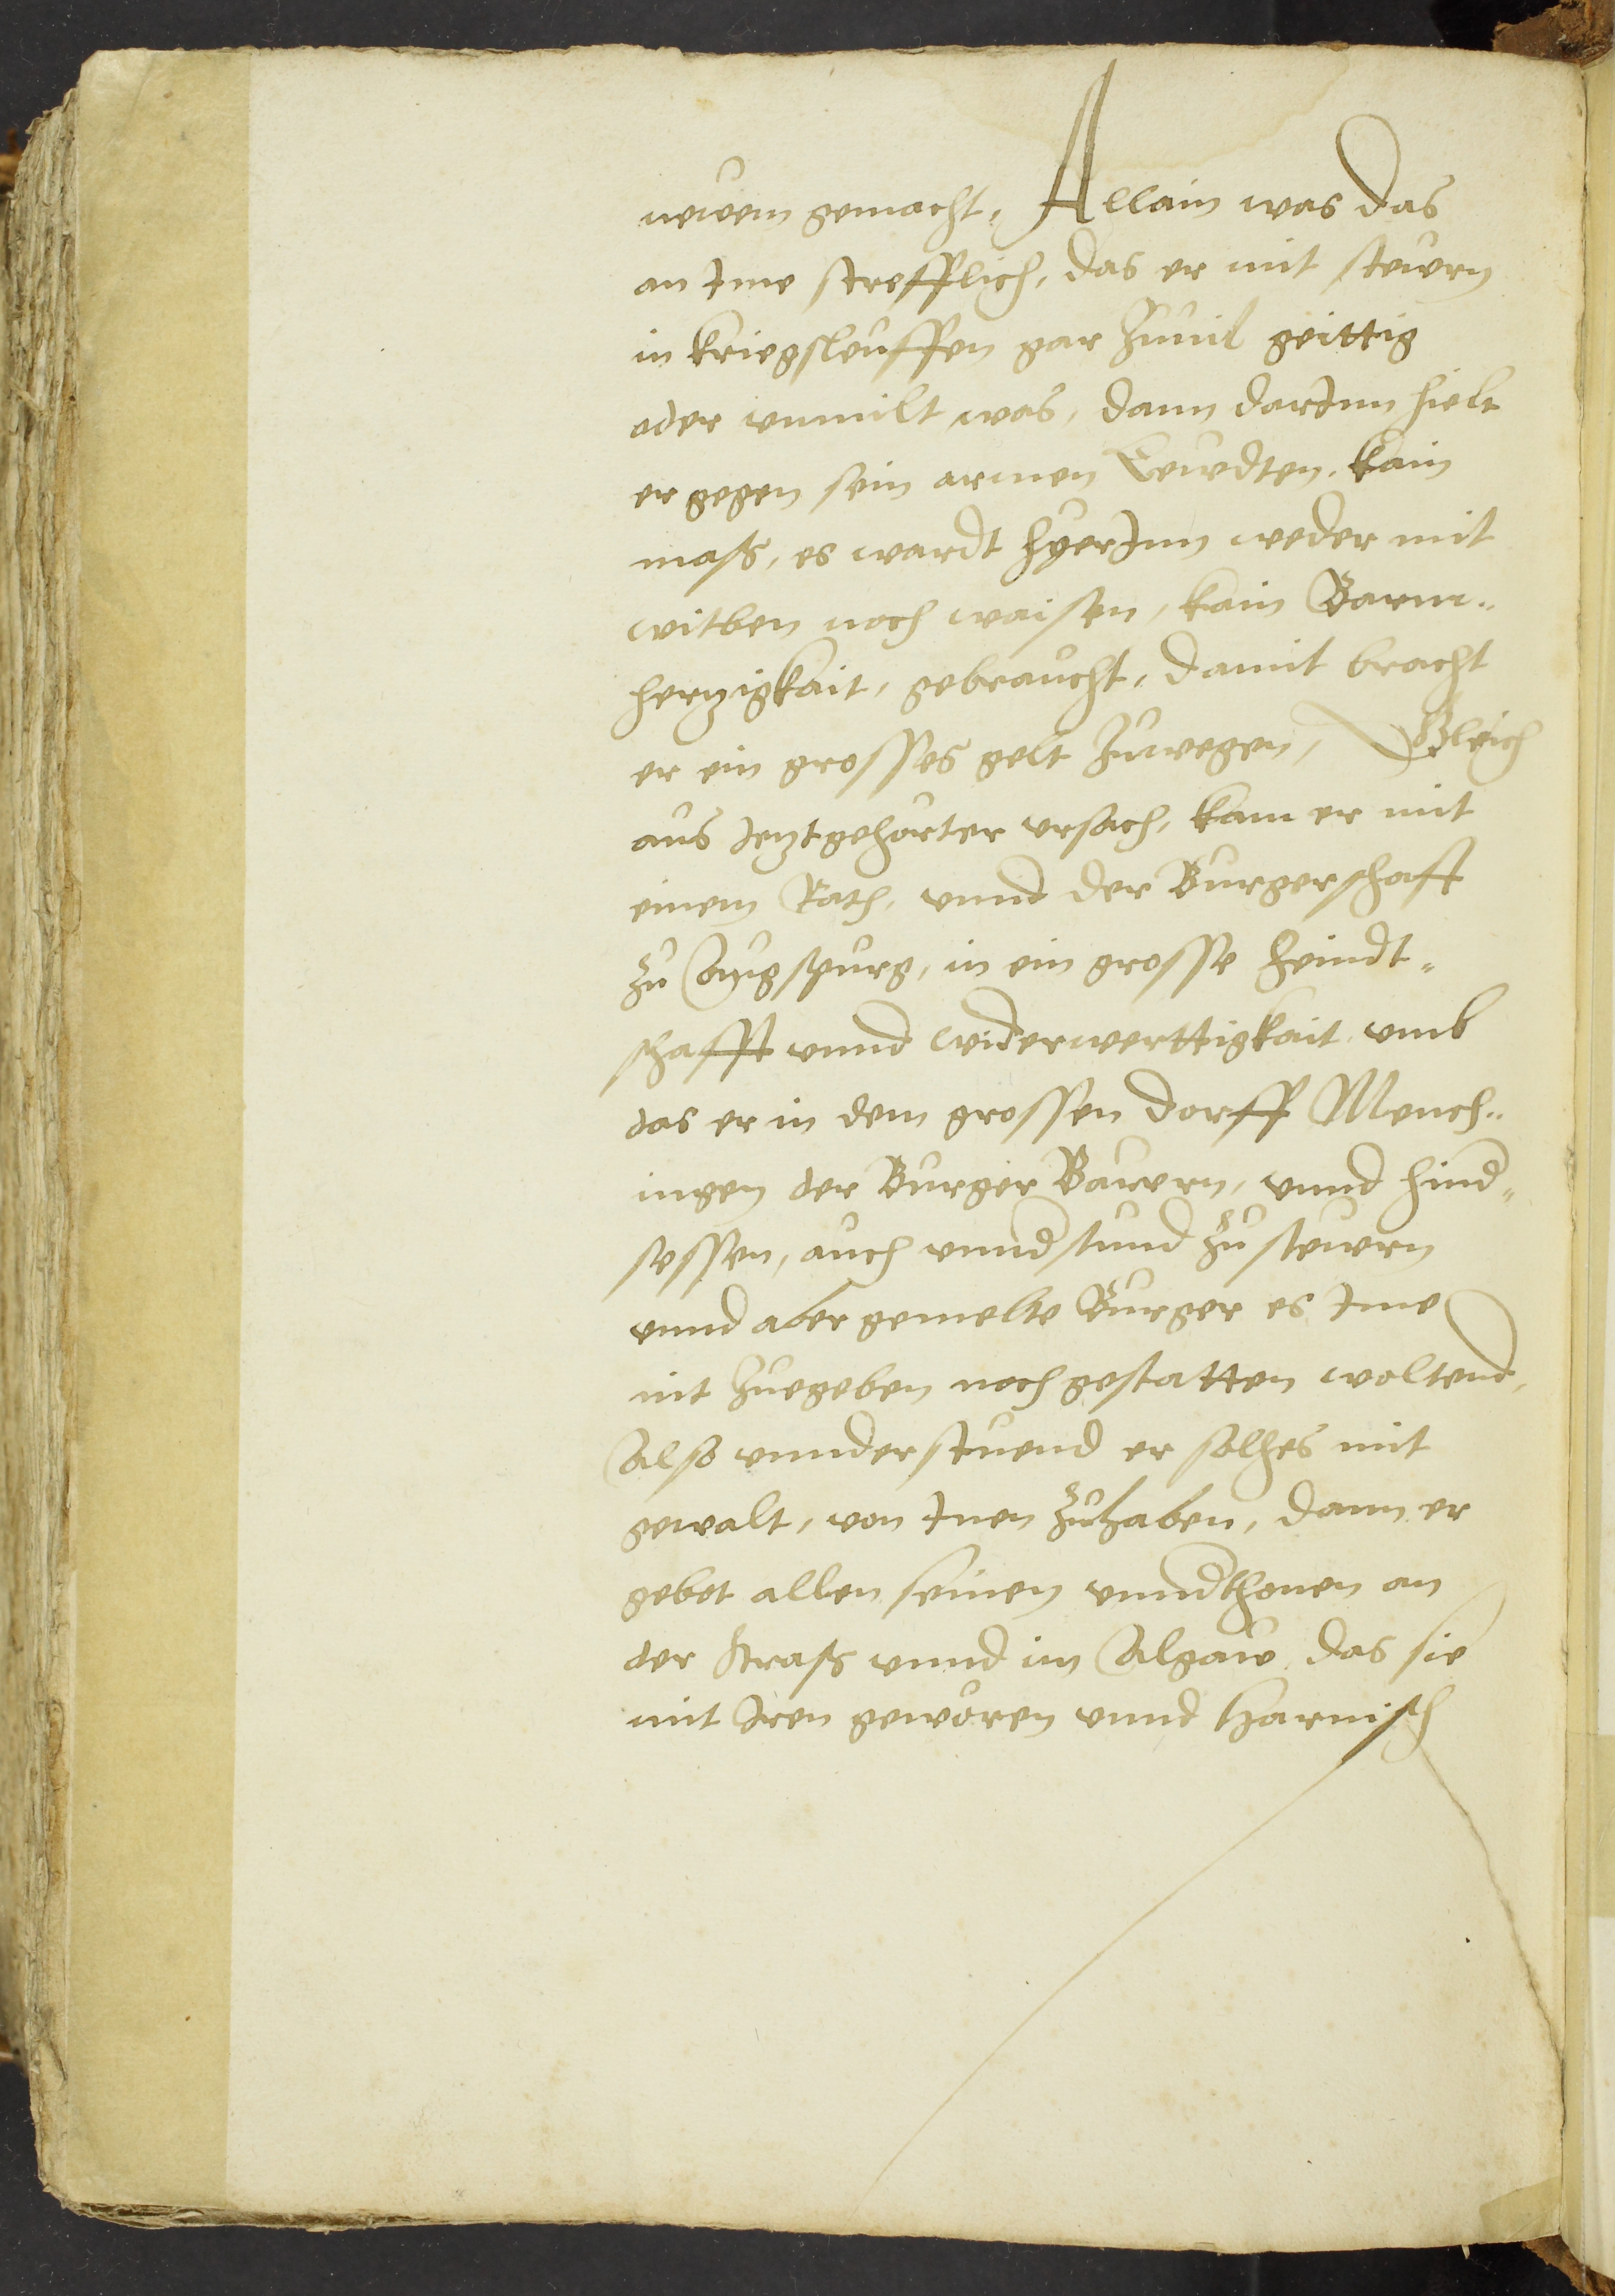 newem gemacht, Allain was das
an Ime strefflich, das er mit steuern
in kriegsleuffen gar zuuil geittig
oder vnmilt was, dann darInn hielt
er gegen sein armen Leuedten, kain
mass, es wardt hyerInn weder mit
witben noch waisen, kain Barm-
hertzigkait, gebraucht, damit bracht
er ein grosses gelt zuwegen, Gleich
aus Jetztgehorter vrsach, kam er mit
einem Rath, vnnd der Burgerschafft
zu Augspurg, in ein grosse feindt-
schafft vnnd widerwerttigkait vmb
das er in dem grossen dorff Mench-
ingen der Burger Bauern, vnnd hind-
sessen, auch vnndstund zu steuern
vnnd aber gemelte Burger es Ime
nit zuegeben noch gestatten woltend,
Also vnnderstuend er solhes mit
gewalt, von Inen zuhaben, dann er
gebot allen seinen vnndthonen an
der strass vnnd im Algaw das sie
mit Iren geworen vnnd Harnisch